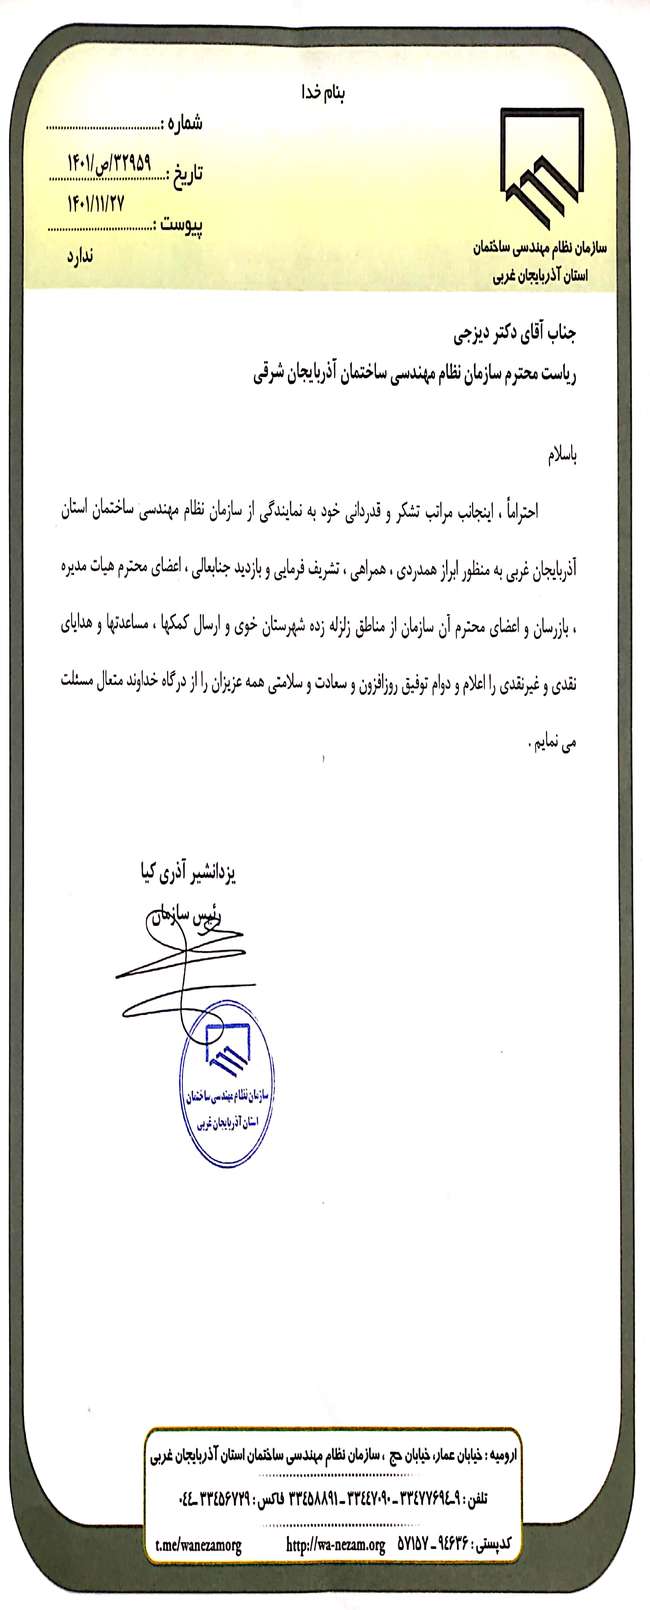 بنام خدا
شماره :
۱۴۰۱/ص/۳۲۹۵۹
تاریخ :
۱۴۰۱/۱۱/۲۷
پیوست :
ندارد
سازمان نظام مهندسی ساختمان
استان آذربایجان غربی
جناب آقای دکتر دیزجی
ریاست محترم سازمان نظام مهندسی ساختمان آذربایجان شرقی
باسلام
احتراماً ، اینجانب مراتب تشکر و قدردانی خود به نمایندگی از سازمان نظام مهندسی ساختمان استان
آذربایجان غربی به منظور ابراز همدردی ، همراهی ، تشریف فرمایی و بازدید جنابعالی ، اعضای محترم هیات مدیره
، بازرسان و اعضای محترم آن سازمان از مناطق زلزله زده شهرستان خوی و ارسال کمکها ، مساعدتها و هدایای
نقدی و غیرنقدی را اعلام و دوام توفیق روزافزون و سعادت و سلامتی همه عزیزان را از درگاه خداوند متعال مسئلت
می نمایم .
یزدانشیر آذری کیا
رئیس سازمان
سازمان نظام مهندسی ساختمان
استان آذربایجان غربی
ارومیه : خیابان عمار، خیابان حج ، سازمان نظام مهندسی ساختمان استان آذربایجان غربی
تلفن : ۹-۳۳۴۷۷۶۹۴ - ۳۳۴۴۷۰۹۰ - ۳۳۴۵۸۸۹۱ فاکس : ۳۳۴۵۶۷۲۹-۰۴۴
کدپستی : ۹۴۶۳۶ - ۵۷۱۵۷ http://wa-nezam.org t.me/wanezamorg